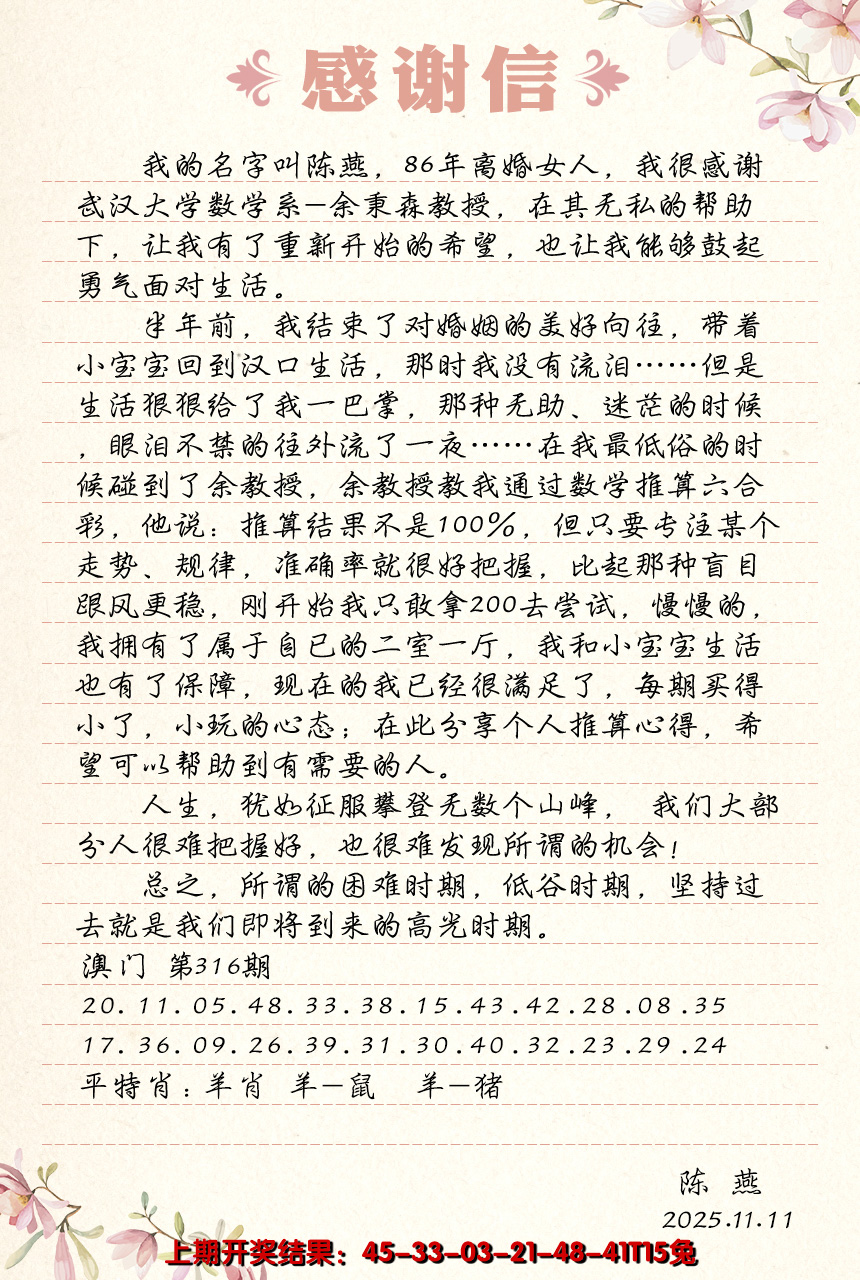 感谢信
我的名字叫陈燕，86年离婚女人，我很感谢
武汉大学数学系—余秉森教授，在其无私的帮助
下，让我有了重新开始的希望，也让我能够鼓起
勇气面对生活。
半年前，我结束了对婚姻的美好向往，带着
小宝宝回到汉口生活，那时我没有流泪……但是
生活狠狠给了我一巴掌，那种无助、迷茫的时候
，眼泪不禁的往外流了一夜……在我最低俗的时
候碰到了余教授，余教授教我通过数学推算六合
彩，他说：推算结果不是100%，但只要专注某个
走势、规律，准确率就很好把握，比起那种盲目
跟风更稳，刚开始我只敢拿200去尝试，慢慢的，
我拥有了属于自己的二室一厅，我和小宝宝生活
也有了保障，现在的我已经很满足了，每期买得
小了，小玩的心态；在此分享个人推算心得，希
望可以帮助到有需要的人。
人生，犹如征服攀登无数个山峰， 我们大部
分人很难把握好，也很难发现所谓的机会！
总之，所谓的困难时期，低谷时期，坚持过
去就是我们即将到来的高光时期。
澳门 第316期
20.11.05.48.33.38.15.43.42.28.08.35
17.36.09.26.39.31.30.40.32.23.29.24
平特肖：羊肖 羊—鼠 羊—猪
陈 燕
2025.11.11
上期开奖结果：45-33-03-21-48-41T15兔